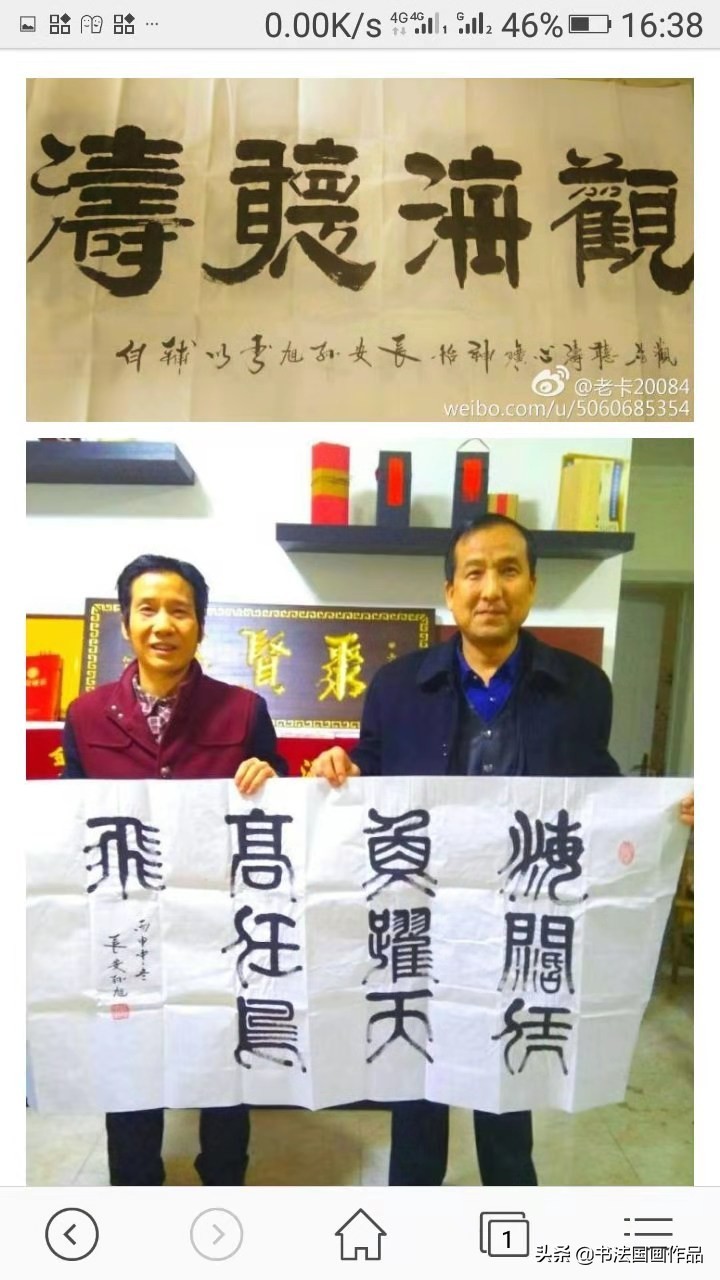 0.00K/s 4G 4G 1 G 2 46% 16:38
觀海聽濤
觀海聽濤心曠神怡長安孙旭書以
@老卡20084
weibo.com/u/5060685354
聚賢
海闊凭
魚躍天
高任鳥
飛
丙申年冬
長安孙旭
1
头条 @书法国画作品